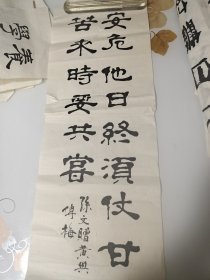 安危他日終須仗甘
苦來時要共嘗
孫文贈黃興
養
學